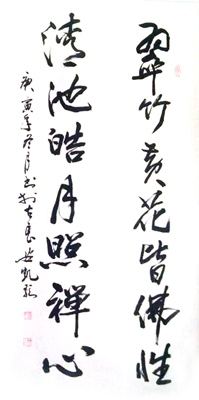 翠竹黄花皆佛性
清池皓月照禅心
庚寅年冬月书于长春岳凯